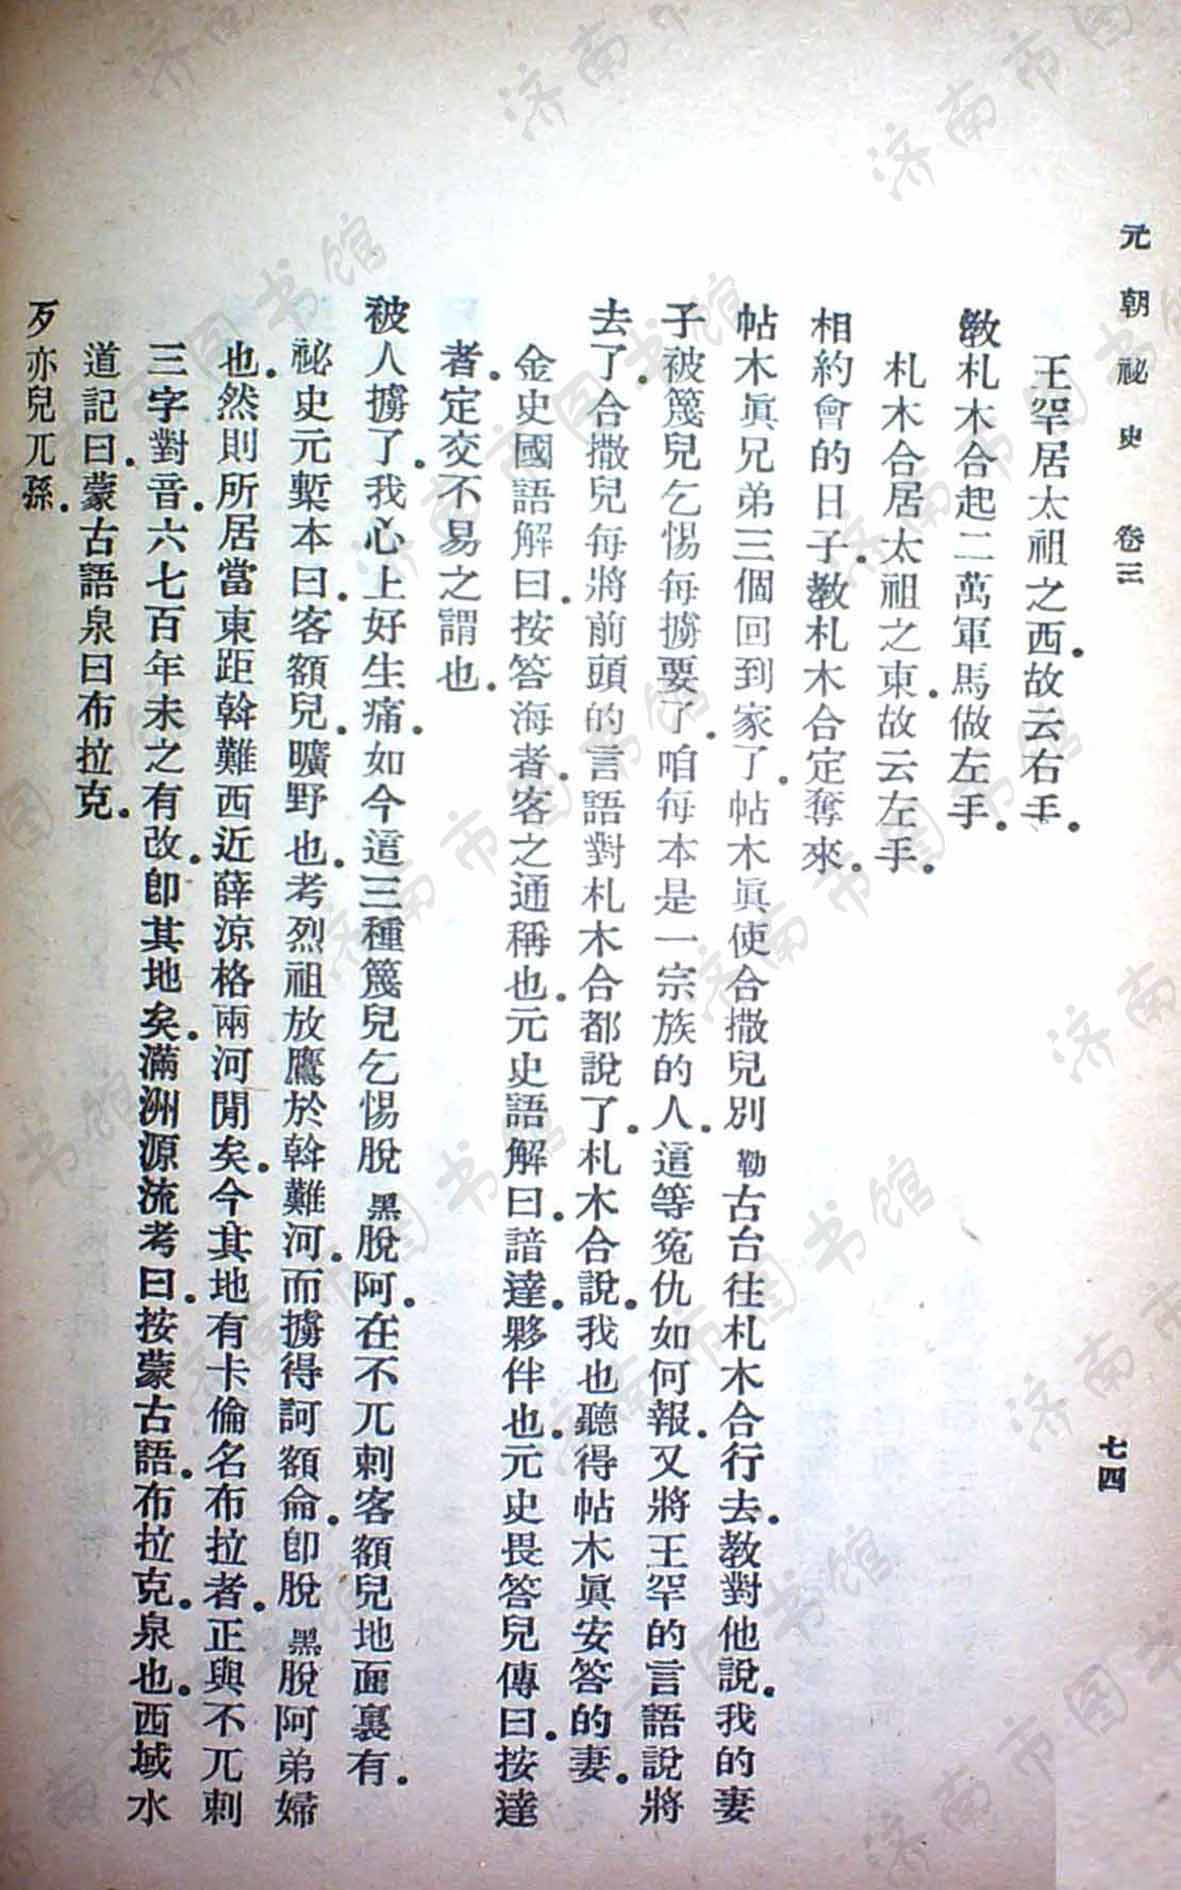 元朝祕史 卷三 七四
王罕居太祖之西。故云右手。
教札木合起二萬軍馬做左手。
札木合居太祖之東。故云左手。
相約會的日子。教札木合定奪來。
帖木眞兄弟三個回到家了。帖木眞使合撒兒別勒古台往札木合行去。教對他說。我的妻
子被篾兒乞惕每擄要了。咱每本是一宗族的人。這等寃仇如何報。又將王罕的言語說將
去了。合撒兒每將前頭的言語對札木合都說了。札木合說。我也聽得帖木眞安答的妻。
金史國語解曰。按答海者。客之通稱也。元史語解曰。諳達。夥伴也。元史畏答兒傳曰。按達
者。定交不易之謂也。
被人擄了。我心上好生痛。如今這三種篾兒乞惕脫黑脫阿。在不兀剌客額兒地面裏有。
祕史元槧本曰。客額兒。曠野也。考烈祖放鷹於斡難河。而擄得訶額侖。卽脫黑脫阿弟婦
也。然則所居當東距斡難西近薛涼格兩河閒矣。今其地有卡倫名布拉者。正與不兀剌
三字對音。六七百年未之有改。卽其地矣。滿洲源流考曰。按蒙古語。布拉克。泉也。西域水
道記曰。蒙古語泉曰布拉克。
歹亦兒兀孫。
济南市图书馆